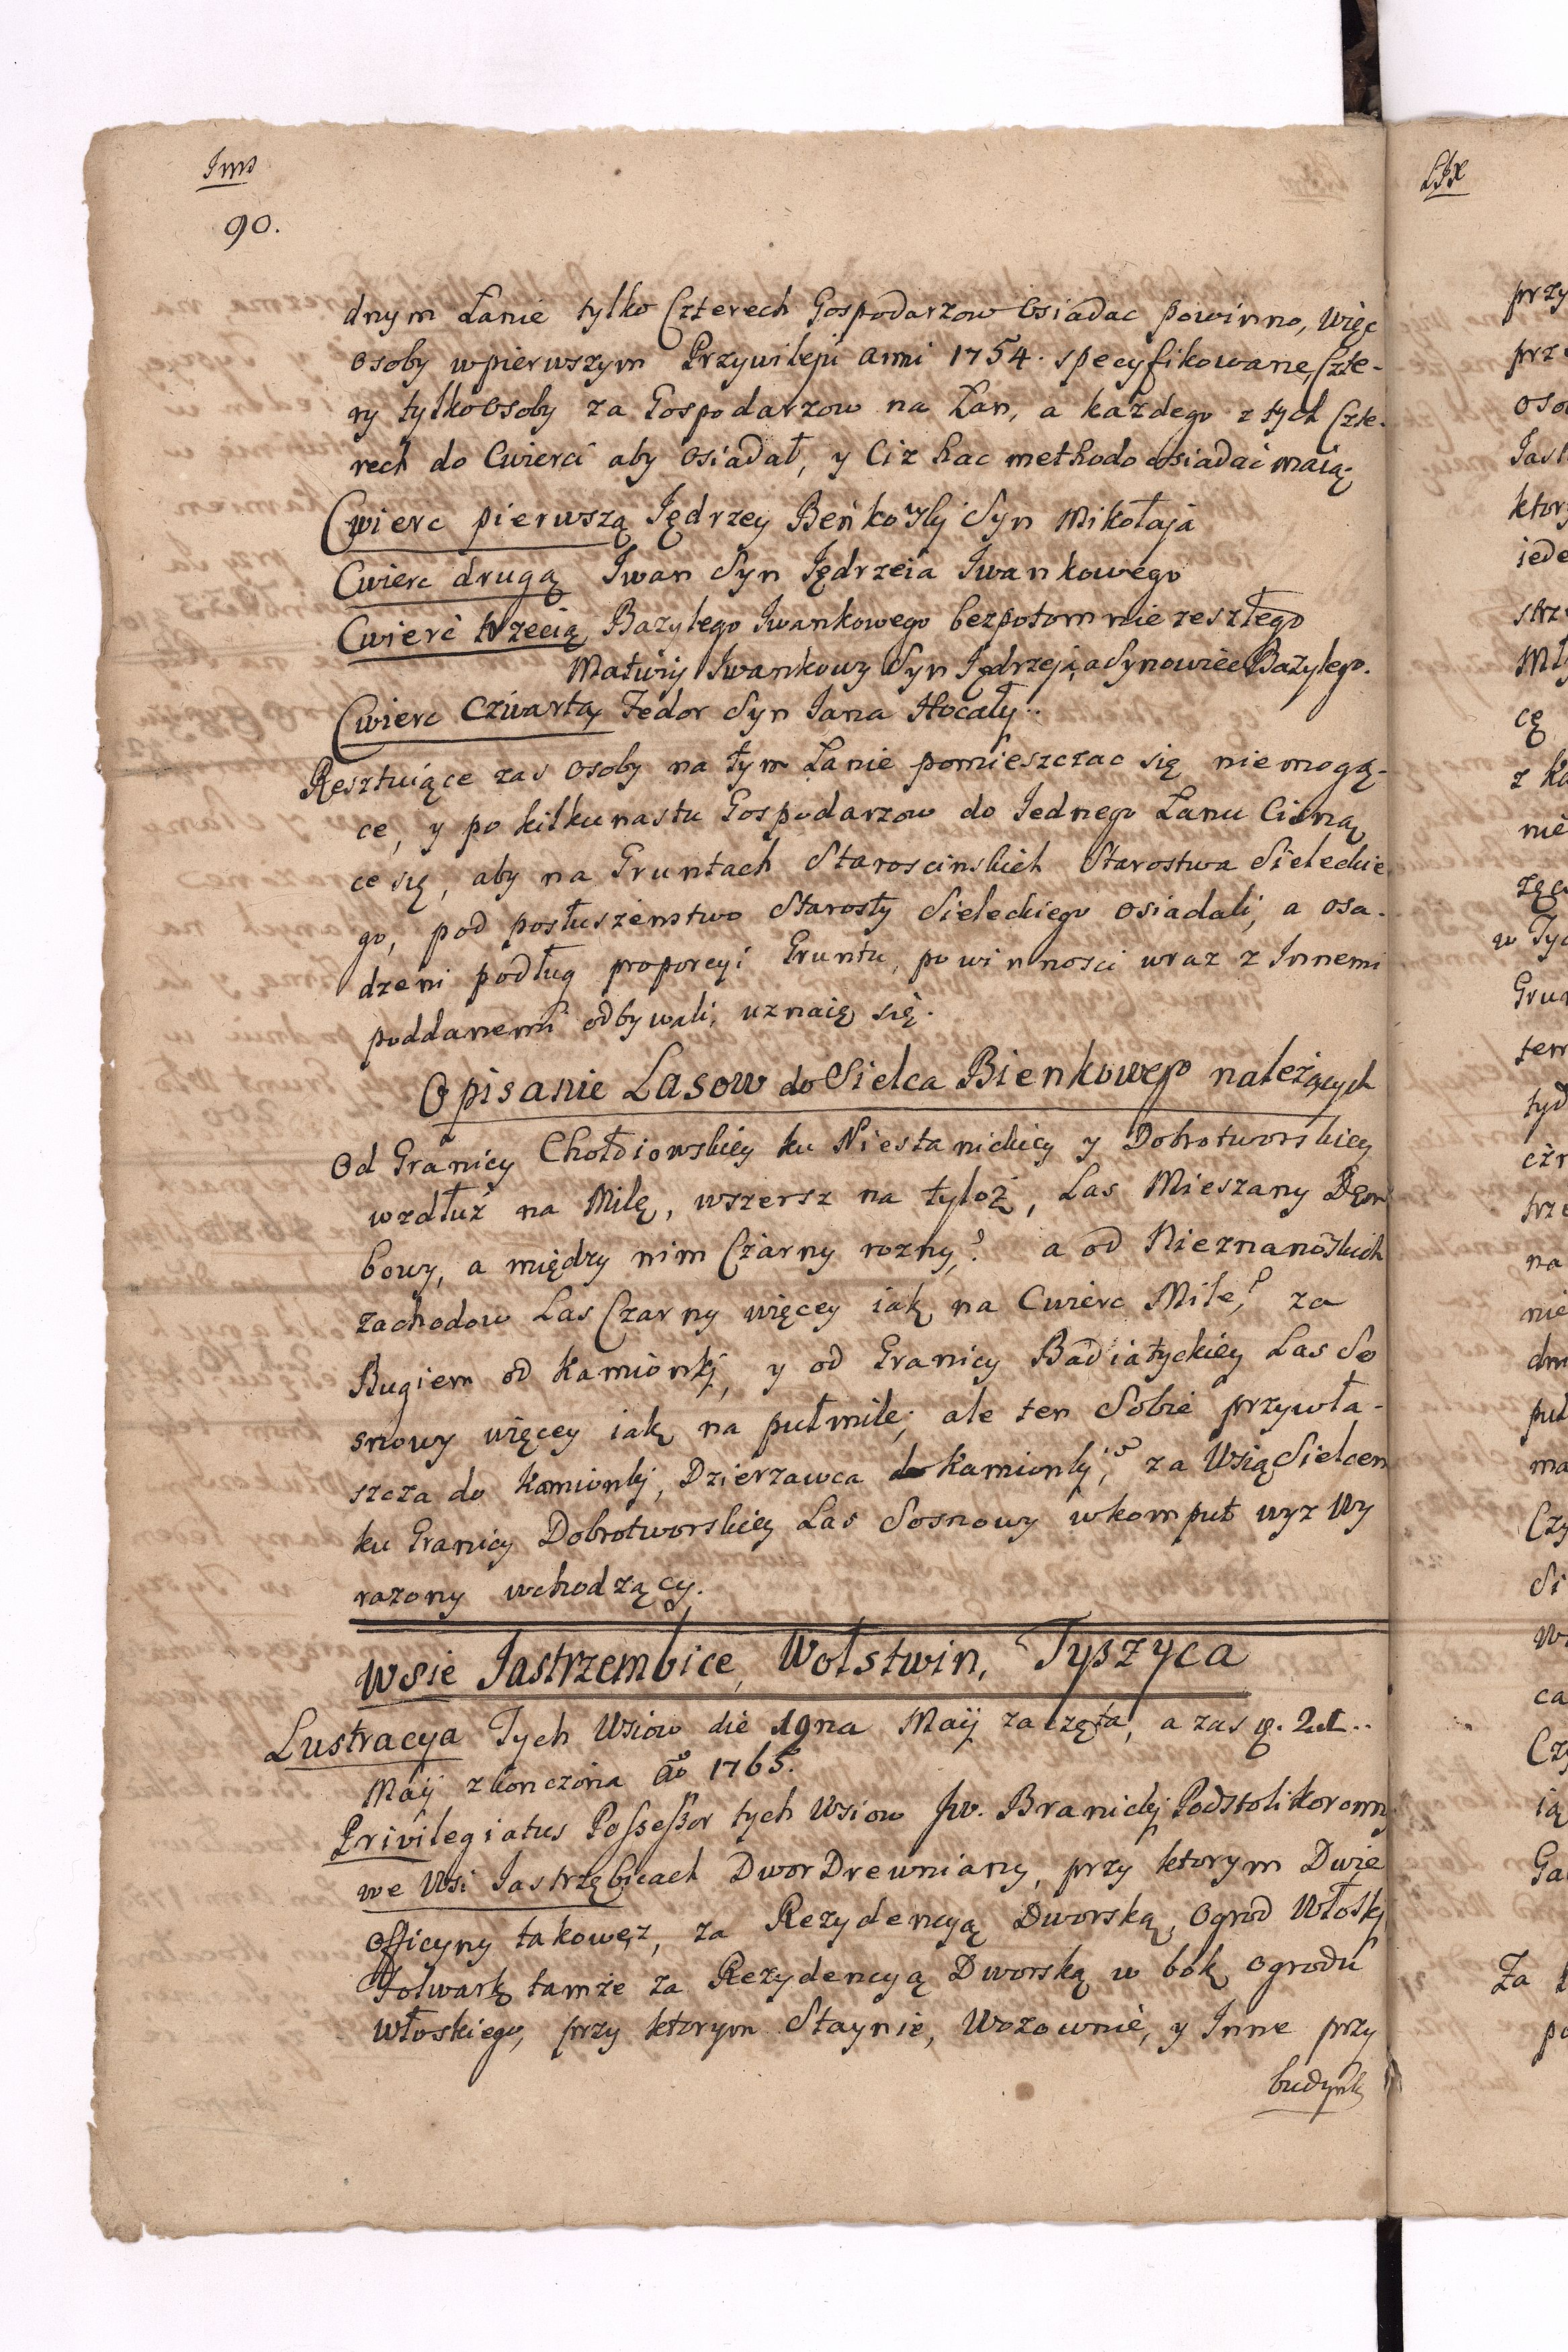 Ims
90.
dnym Łanie tylko Czterech Gospodarzow osiadac powinno, więc
osoby wpierwszym Przywileju anni 1754. specyfikowane, Czte-
ry tylko osoby za Gospodarzow na Łan, a każdego z tych Czte-
rech do Cwierci aby osiadał, y Ciż hac methodo osiadać maią.
Cwierc pierwszą Jędrzey Beńkowskj Syn Mikołaja
Cwierc drugą Iwan Syn Jędrzeia Iwankowego
Cwierć trzecią Bazylego Iwankowego bezpotomnie zeszłego
Matwiy Iwankowy Syn Jędrzeja, a Synowiec Bazylego.
Cwierc czwartą Fedor Syn Jana Hocały..
Resztuiące zas osoby na tym Łanie pomieszczac się niemogą-
ce, y po kilkunastu Gospodarzow do Jednego Łanu Cisną
ce się, aby na Gruntach Staroscinskich Starostwa Sieleckie
go, pod posłuszeństwo Starosty Sieleckiego osiadali, a osa-
dzeni podług proporcyi Gruntu, powinnosci wraz z Innemi
poddanemi odbywali, uznaię się.
Opisanie Lasow do Sielca Bienkowego należących
Od Granicy Chołoiowskiey ku Niestanickiey y Dobrotworskiey
wzdłuż na Milę, wszersz na tyloż, Las Mieszany Dęm
bowy, a między nim Czarny rozny, a od Nieznanoskich
zachodow Las Czarny więcey iak na Cwierc Mile, za
Bugiem od Kamionkj, y od Granicy Badiatyckiey Las So
snowy więcey iak na pułmile, ale ten Sobie przywła-
szcza do Kamionkj, Dzierzawca do Kamionkj, za Wsią Sielcem
ku Granicy Dobrotworskiey Las Sosnowy wkomput wyz Wy
razony wchodzący.
Wsie Jastrzembice, Wołstwin, Tyszyca
Lustracya Tych Wsiow die 19na Maij zaczęta, a zas
Maij zkonczona Ao 1765.
Privilegiatus Possessor tych Wsiow Jw. Branickj Podstoli Koronny
we Wsi Jastrzębicach Dwor Drewniany, przy ktorym Dwie
officyny takowez, za Rezydencyą Dworską, Ogrod Włoskj
Folwark tamże za Rezydencyą Dworską w bok ogrodu
włoskiego, przy ktorym Staynie, Wozownie, y Inne przy
budynk
LIX